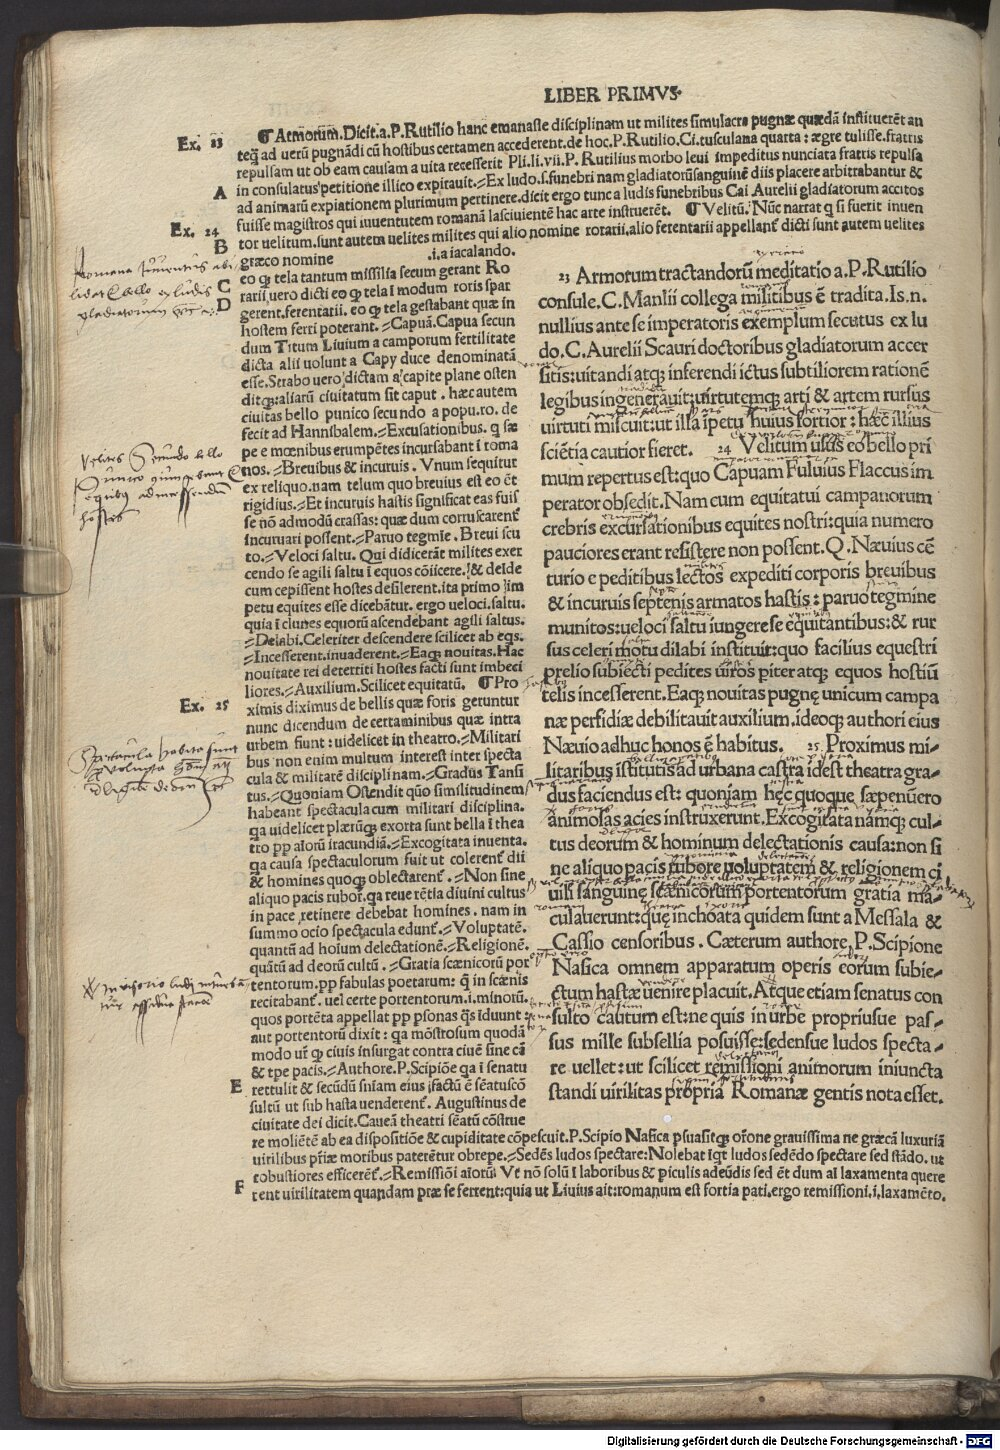 LIBER PRIMVS·
Ex. 23
¶ Armorum. Dicit.a.P.Rutilio hanc emanasse disciplinam ut milites simulacra pugnæ quædā instituerēt an
teq̄ ad uerū pugnādi cū hostibus certamen accederent.de hoc.P.Rutilio.Ci.tusculana quarta: ægre tulisse.fratris
repulsam ut ob eam causam a uita recesserit Pli.li.vii.P. Rutilius morbo leui impeditus nunciata fratris repulsa
in consulatus petitione illico expirauit.=Ex ludo.s.funebri nam gladiatorū sanguinē diis placere arbitrabantur &
A
ad animarū expiationem plurimum pertinere.dicit ergo tunc a ludis funebribus Cai Aurelii gladiatorum accitos
fuisse magistros qui iuuentutem romanā lasciuientē hac arte instruerēt. ¶ Velitū. Nūc narrat q si fuerit inuen
Ex. 24
tor uelitum.sunt autem uelites milites qui alio nomine rotarii.alio ferentarii appellant̄ dicti sunt autem uelites
B
græco nomine .i.a iacalando.
eo q̢ tela tantum missilia secum gerant Ro
C
rarii uero dicti eo q̢ tela ī modum roris spar
D
gerent.ferentarii. eo q̢ tela gestabant quæ in
hostem ferri poterant.=Capuā.Capua secun
dum Titum Liuium a camporum fertilitate
dicta alii uolunt a Capy duce denominatā
esse.Strabo uero dictam a capite plane osten
ditq̢: aliarū ciuitatum sit caput . hæc autem
ciuitas bello punico secundo a popu.ro. de
fecit ad Hannibalem.=Excusationibus. q sæ
pe e mœnibus erumpētes incursabant ī roma
nos.=Breuibus & incuruis . Vnum sequitur
ex reliquo.nam telum quo breuius est eo ēt
rigidius.=Et incuruis hastis significat eas fuis
se nō admodū crassas: quæ dum corruscarent̄
incuruari possent.=Paruo tegmīe. Breui scu
to.=Veloci saltu. Qui didicerāt milites exer
cendo se agili saltu ī equos cōiicere. & deīde
cum cepissent hostes desilerent.ita primo im
petu equites esse dicebātur. ergo ueloci.saltu.
quia ī clunes equorū ascendebant agili saltus.
=Delabi.Celeriter descendere scilicet ab eqs.
=Incesserent.inuaderent.=Eaq̢ nouitas.Hac
nouitate rei deterriti hostes facti sunt imbeci
liores.=Auxilium.Scilicet equitatū. ¶ Pro
Ex. 25
ximis diximus de bellis quæ foris geruntur
nunc dicendum de certaminibus quæ intra
urbem fiunt: uidelicet in theatro.=Militari
bus non enim multum interest inter specta
cula & militarē disciplinam.=Gradus Transi
tus.=Quoniam Ostendit quo similitudinem
habeant spectacula cum militari disciplina.
qa uidelicet plærūq̢ exorta sunt bella ī thea
tro pp aiorū iracundiā.=Excogitata inuenta.
qa causa spectaculorum fuit ut colerent̄ dii
& homines quoq̢ oblectarent̄ .=Non sine
aliquo pacis rubor.qa reuerētia diuini cultus
in pace retinere debebat homines. nam in
summo ocio spectacula edunt̄.=Voluptatē.
quantū ad hoium delectationē.=Religionē.
quātū ad deorū cultū . =Gratia scænicorū por
tentorum.pp fabulas poetarum: q̄ in scænis
recitabant̄ . uel certe portentorum .i.minorū.
quos portēta appellat pp psonas q̄s īduunt:
aut portentorū dixit: qa mōstrosum quodā
modo ur̄ q̢ ciuis insurgat contra ciuē sine cā
& tpe pacis.=Authore.P.Scipiōe qa ī senatu
E
rettulit & secūdū sniam eius factū ē sēatuscō
sultū ut sub hasta uenderent̄ . Augustinus de
ciuitate dei dicit. Caueā theatri sēatū cōstrue
re moliētē ab ea dispositiōe & cupiditate cōpescuit.P.Scipio Nasica psuasitq̢ orōne grauissima ne græcā luxuriā
uirilibus pr̄iæ moribus paterētur obrepe.=Sedēs ludos spectare: Nolebat īqt ludos sedēdo spectare sed stādo. ut
robustiores efficerēt̄.=Remissiōi aiorū: Vt nō solū ī laboribus & piculis adeūdis sed ēt dum ai laxamenta quere
F
rent uirilitatem quandam præ se ferrent: quia ut Liuius ait: romanum est fortia pati.ergo remissioni.i.laxamēto.
23 Armorum tractandorū meditatio a.P.Rutilio
consule.C.Manlii collega militibus ē tradita.Is.n.
nullius ante se imperatoris exemplum secutus ex lu
do.C.Aurelii Scauri doctoribus gladiatorum accer
sitis: uitandi atq̢ inferendi ictus subtiliorem rationē
legibus ingenerauit: uirtutemq̢ arti & artem rursus
uirtuti miscuit: ut illa īpetu huius fortior: hæc illius
sciētia cautior fieret. 24 Velitum usus eo bello pri
mum repertus est: quo Capuam Fuluius Flaccus im
perator obsedit. Nam cum equitatui campanorum
crebris excursationibus equites nostri: quia numero
pauciores erant resistere non possent. Q. Næuius cē
turio e peditibus lectos expediti corporis breuibus
& incuruis septenis armatos hastis: paruo tegmine
munitos: ueloci saltu iungere se equitantibus: & rur
sus celeri motu dilabi instituit: quo facilius equestri
prelio subiecti pedites uiros piter atq̢ equos hostiū
telis incesserent. Eaq̢ nouitas pugnę unicum campa
næ perfidiæ debilitauit auxilium.ideoq̢ authori eius
Næuio adhuc honos ē habitus. 25 Proximus mi-
litaribus īstitutis ad urbana castra idest theatra gra-
dus faciendus est: quoniam hęc quoque sæpenūero
animosas acies instruxerunt. Excogitata namq̢ cul-
tus deorum & hominum delectationis causa: non si
ne aliquo pacis rubore uoluptatem & religionem ci
uili sanguine scænicorum portentorum gratia ma-
culauerunt: quę inchoata quidem sunt a Messala &
Cassio censoribus. Cæterum authore P.Scipione
Nasica omnem apparatum operis eorum subie-
ctum hastæ uenire placuit. Atque etiam senatus con
sulto cautum est: ne quis in urbe propriusue pas-
sus mille subsellia posuisse: sedensue ludos specta-
re uellet: ut scilicet remissioni animorum iniuncta
standi uirilitas propria Romanæ gentis nota esset.
Digitalisierung gefördert durch die Deutsche Forschungsgemeinschaft - DFG